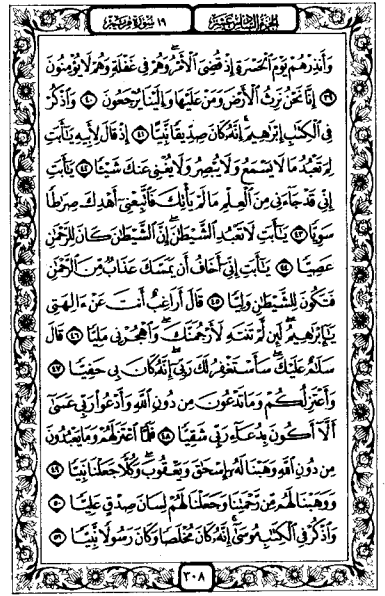 الجزء السادس عشر ١٩ سورة مريم
وَأَنذِرْهُمْ يَوْمَ ٱلْحَسْرَةِ إِذْ قُضِىَ ٱلْأَمْرُ وَهُمْ فِى غَفْلَةٍ وَهُمْ لَا يُؤْمِنُونَ
﴿٣٩﴾ إِنَّا نَحْنُ نَرِثُ ٱلْأَرْضَ وَمَنْ عَلَيْهَا وَإِلَيْنَا يُرْجَعُونَ ﴿٤٠﴾ وَٱذْكُرْ
فِى ٱلْكِتَٰبِ إِبْرَٰهِيمَ إِنَّهُۥ كَانَ صِدِّيقًا نَّبِيًّا ﴿٤١﴾ إِذْ قَالَ لِأَبِيهِ يَٰٓأَبَتِ
لِمَ تَعْبُدُ مَا لَا يَسْمَعُ وَلَا يُبْصِرُ وَلَا يُغْنِى عَنكَ شَيْـًٔا ﴿٤٢﴾ يَٰٓأَبَتِ
إِنِّى قَدْ جَآءَنِى مِنَ ٱلْعِلْمِ مَا لَمْ يَأْتِكَ فَٱتَّبِعْنِىٓ أَهْدِكَ صِرَٰطًا
سَوِيًّا ﴿٤٣﴾ يَٰٓأَبَتِ لَا تَعْبُدِ ٱلشَّيْطَٰنَ إِنَّ ٱلشَّيْطَٰنَ كَانَ لِلرَّحْمَٰنِ
عَصِيًّا ﴿٤٤﴾ يَٰٓأَبَتِ إِنِّىٓ أَخَافُ أَن يَمَسَّكَ عَذَابٌ مِّنَ ٱلرَّحْمَٰنِ
فَتَكُونَ لِلشَّيْطَٰنِ وَلِيًّا ﴿٤٥﴾ قَالَ أَرَاغِبٌ أَنتَ عَنْ ءَالِهَتِى
يَٰٓإِبْرَٰهِيمُ لَئِن لَّمْ تَنتَهِ لَأَرْجُمَنَّكَ وَٱهْجُرْنِى مَلِيًّا ﴿٤٦﴾ قَالَ
سَلَٰمٌ عَلَيْكَ سَأَسْتَغْفِرُ لَكَ رَبِّىٓ إِنَّهُۥ كَانَ بِى حَفِيًّا ﴿٤٧﴾
وَأَعْتَزِلُكُمْ وَمَا تَدْعُونَ مِن دُونِ ٱللَّهِ وَأَدْعُوا۟ رَبِّى عَسَىٰٓ
أَلَّآ أَكُونَ بِدُعَآءِ رَبِّى شَقِيًّا ﴿٤٨﴾ فَلَمَّا ٱعْتَزَلَهُمْ وَمَا يَعْبُدُونَ
مِن دُونِ ٱللَّهِ وَهَبْنَا لَهُۥٓ إِسْحَٰقَ وَيَعْقُوبَ وَكُلًّا جَعَلْنَا نَبِيًّا ﴿٤٩﴾
وَوَهَبْنَا لَهُم مِّن رَّحْمَتِنَا وَجَعَلْنَا لَهُمْ لِسَانَ صِدْقٍ عَلِيًّا ﴿٥٠﴾
وَٱذْكُرْ فِى ٱلْكِتَٰبِ مُوسَىٰٓ إِنَّهُۥ كَانَ مُخْلَصًا وَكَانَ رَسُولًا نَّبِيًّا ﴿٥١﴾
٣٠٨